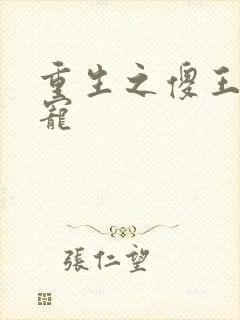 重生之傻王
寵
張仁望